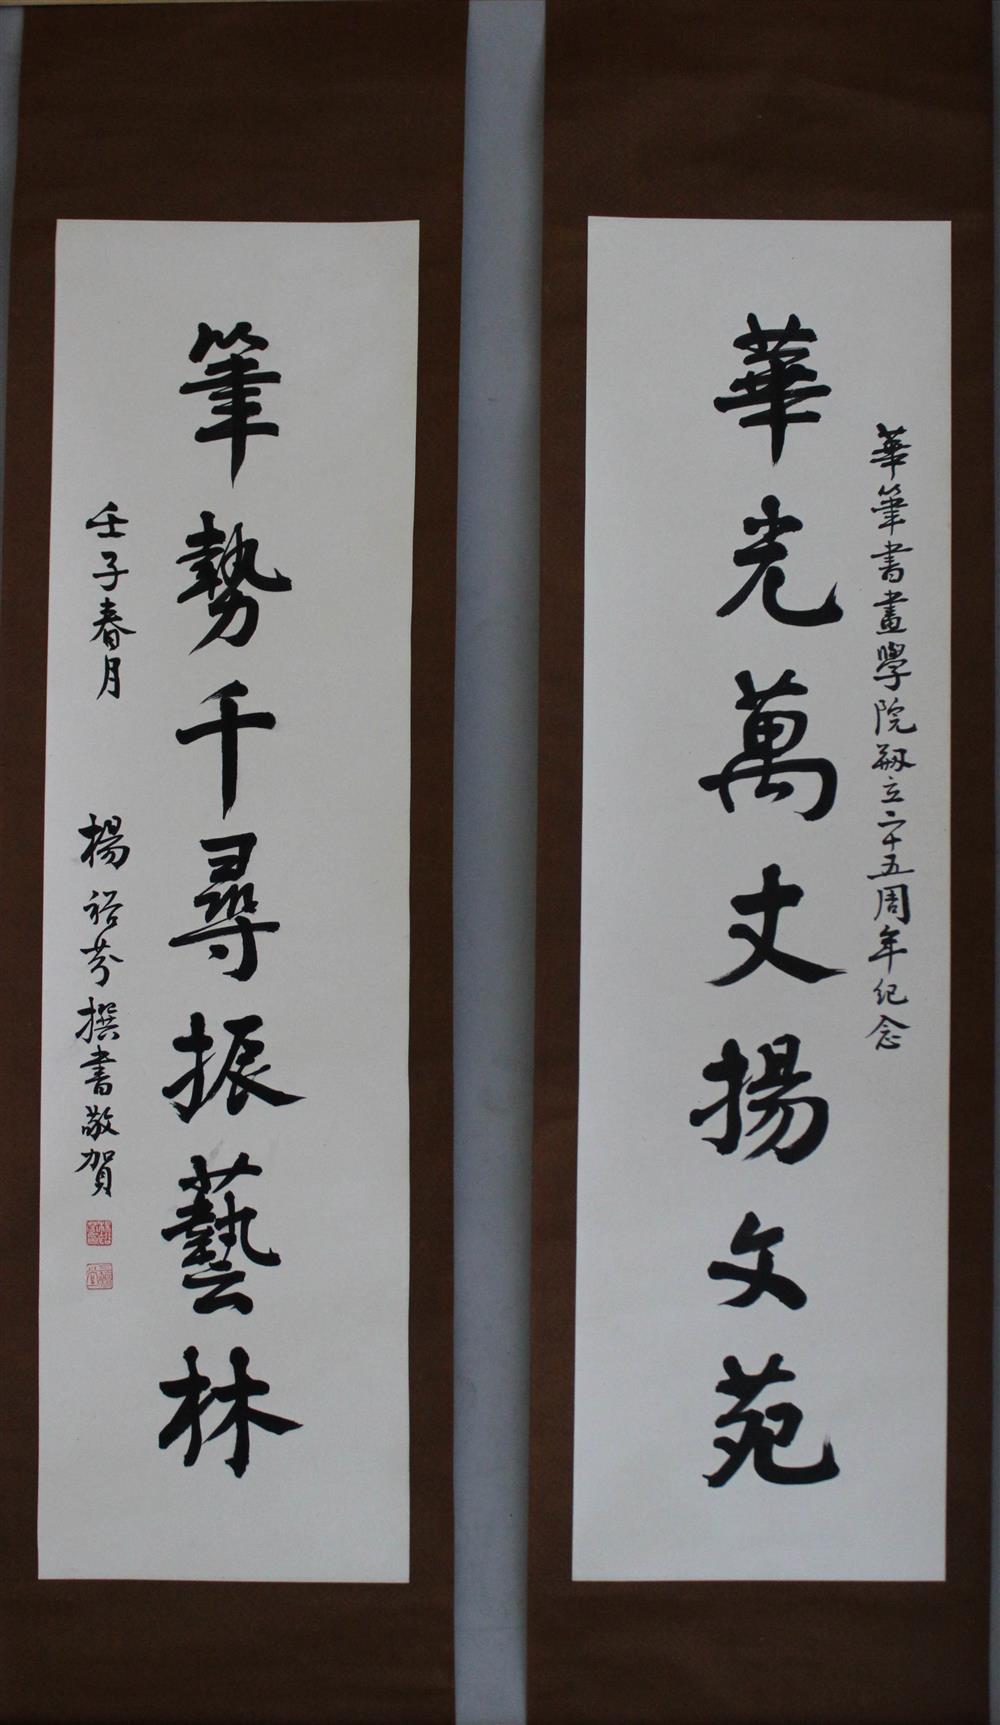 華筆書畫學院剏立二十五周年纪念
華光萬丈揚文苑
筆勢千尋振藝林
壬子春月
楊裕芬撰書敬賀